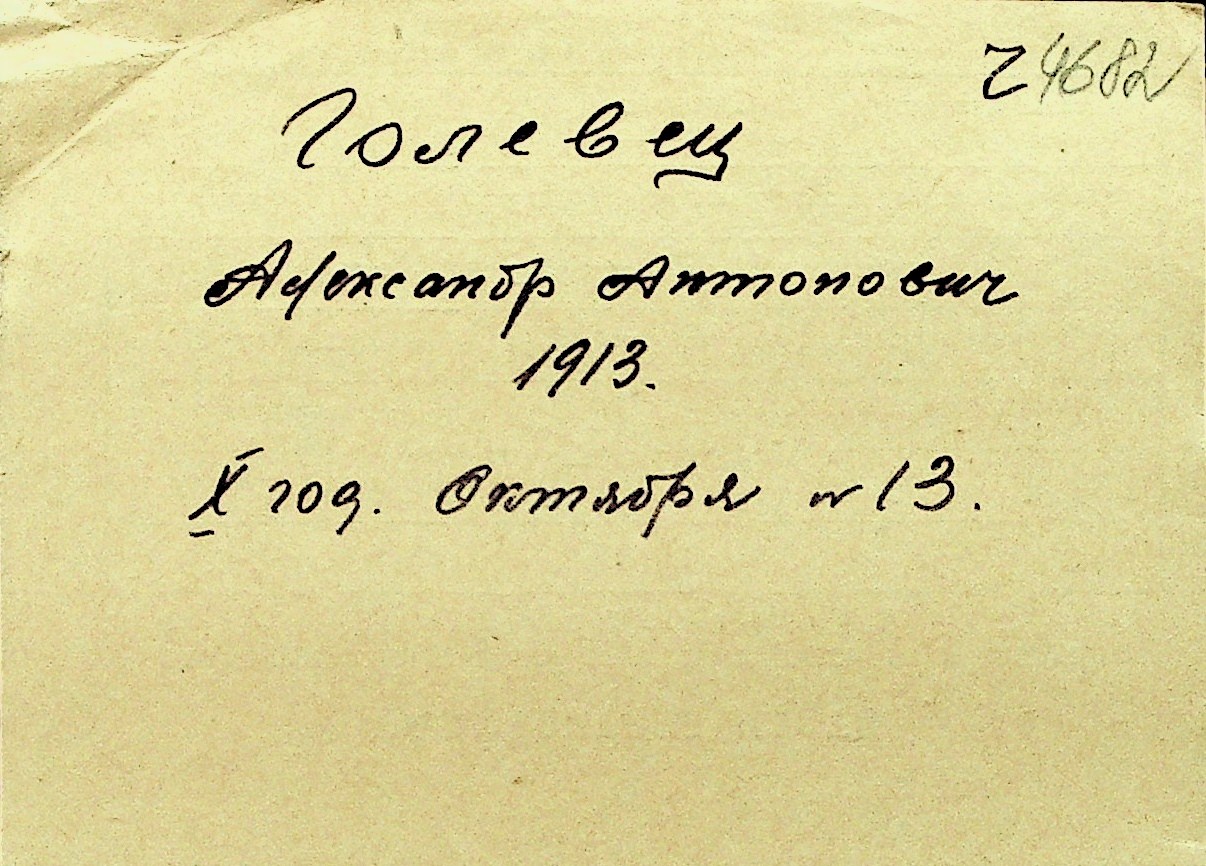 24682
Голевец
Александр Антонович
1913.
X год. Октября № 13.